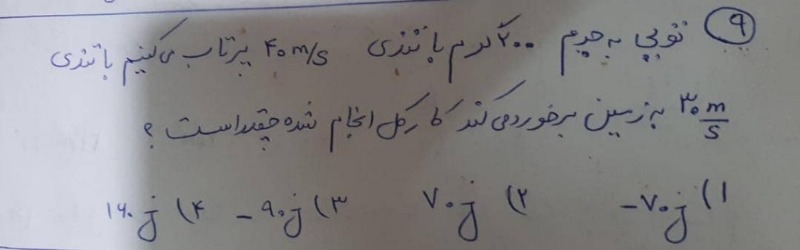 ۹ توپی به جرم ۲۰۰ گرم با تندی ۴۰ m/s پرتاب می‌کنیم با تندی
۳۰ m/s به زمین برخورد می‌کند کار کل انجام شده چقدر است ؟
۱) -۷۰ j ۲) ۷۰ j ۳) -۹۰ j ۴) ۱۶۰ j